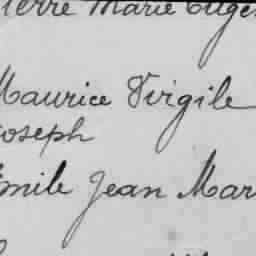 Pierre Marie Eugè
Maurice Virgile
Joseph
Emile Jean Mar